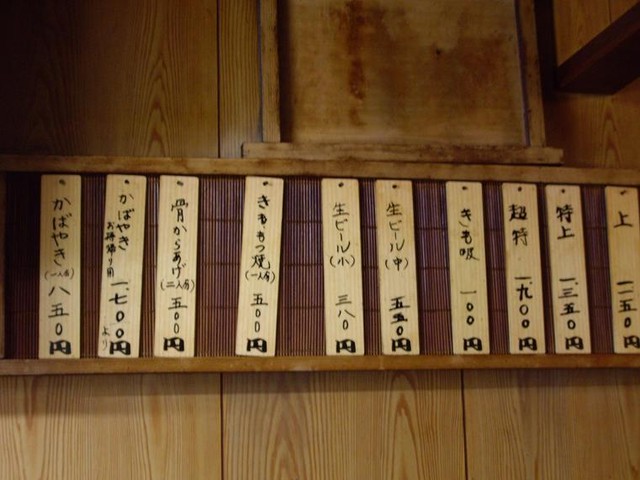 上 一一五〇円
特上 一、三五〇円
超特 一、九〇〇円
きも吸 一〇〇円
生ビール(中) 五五〇円
生ビール(小) 三八〇円
きももつ焼(一人前) 五〇〇円
骨からあげ(二人前) 五〇〇円
かばやき
お持帰り用
一、七〇〇円より
かばやき(一人前) 八五〇円